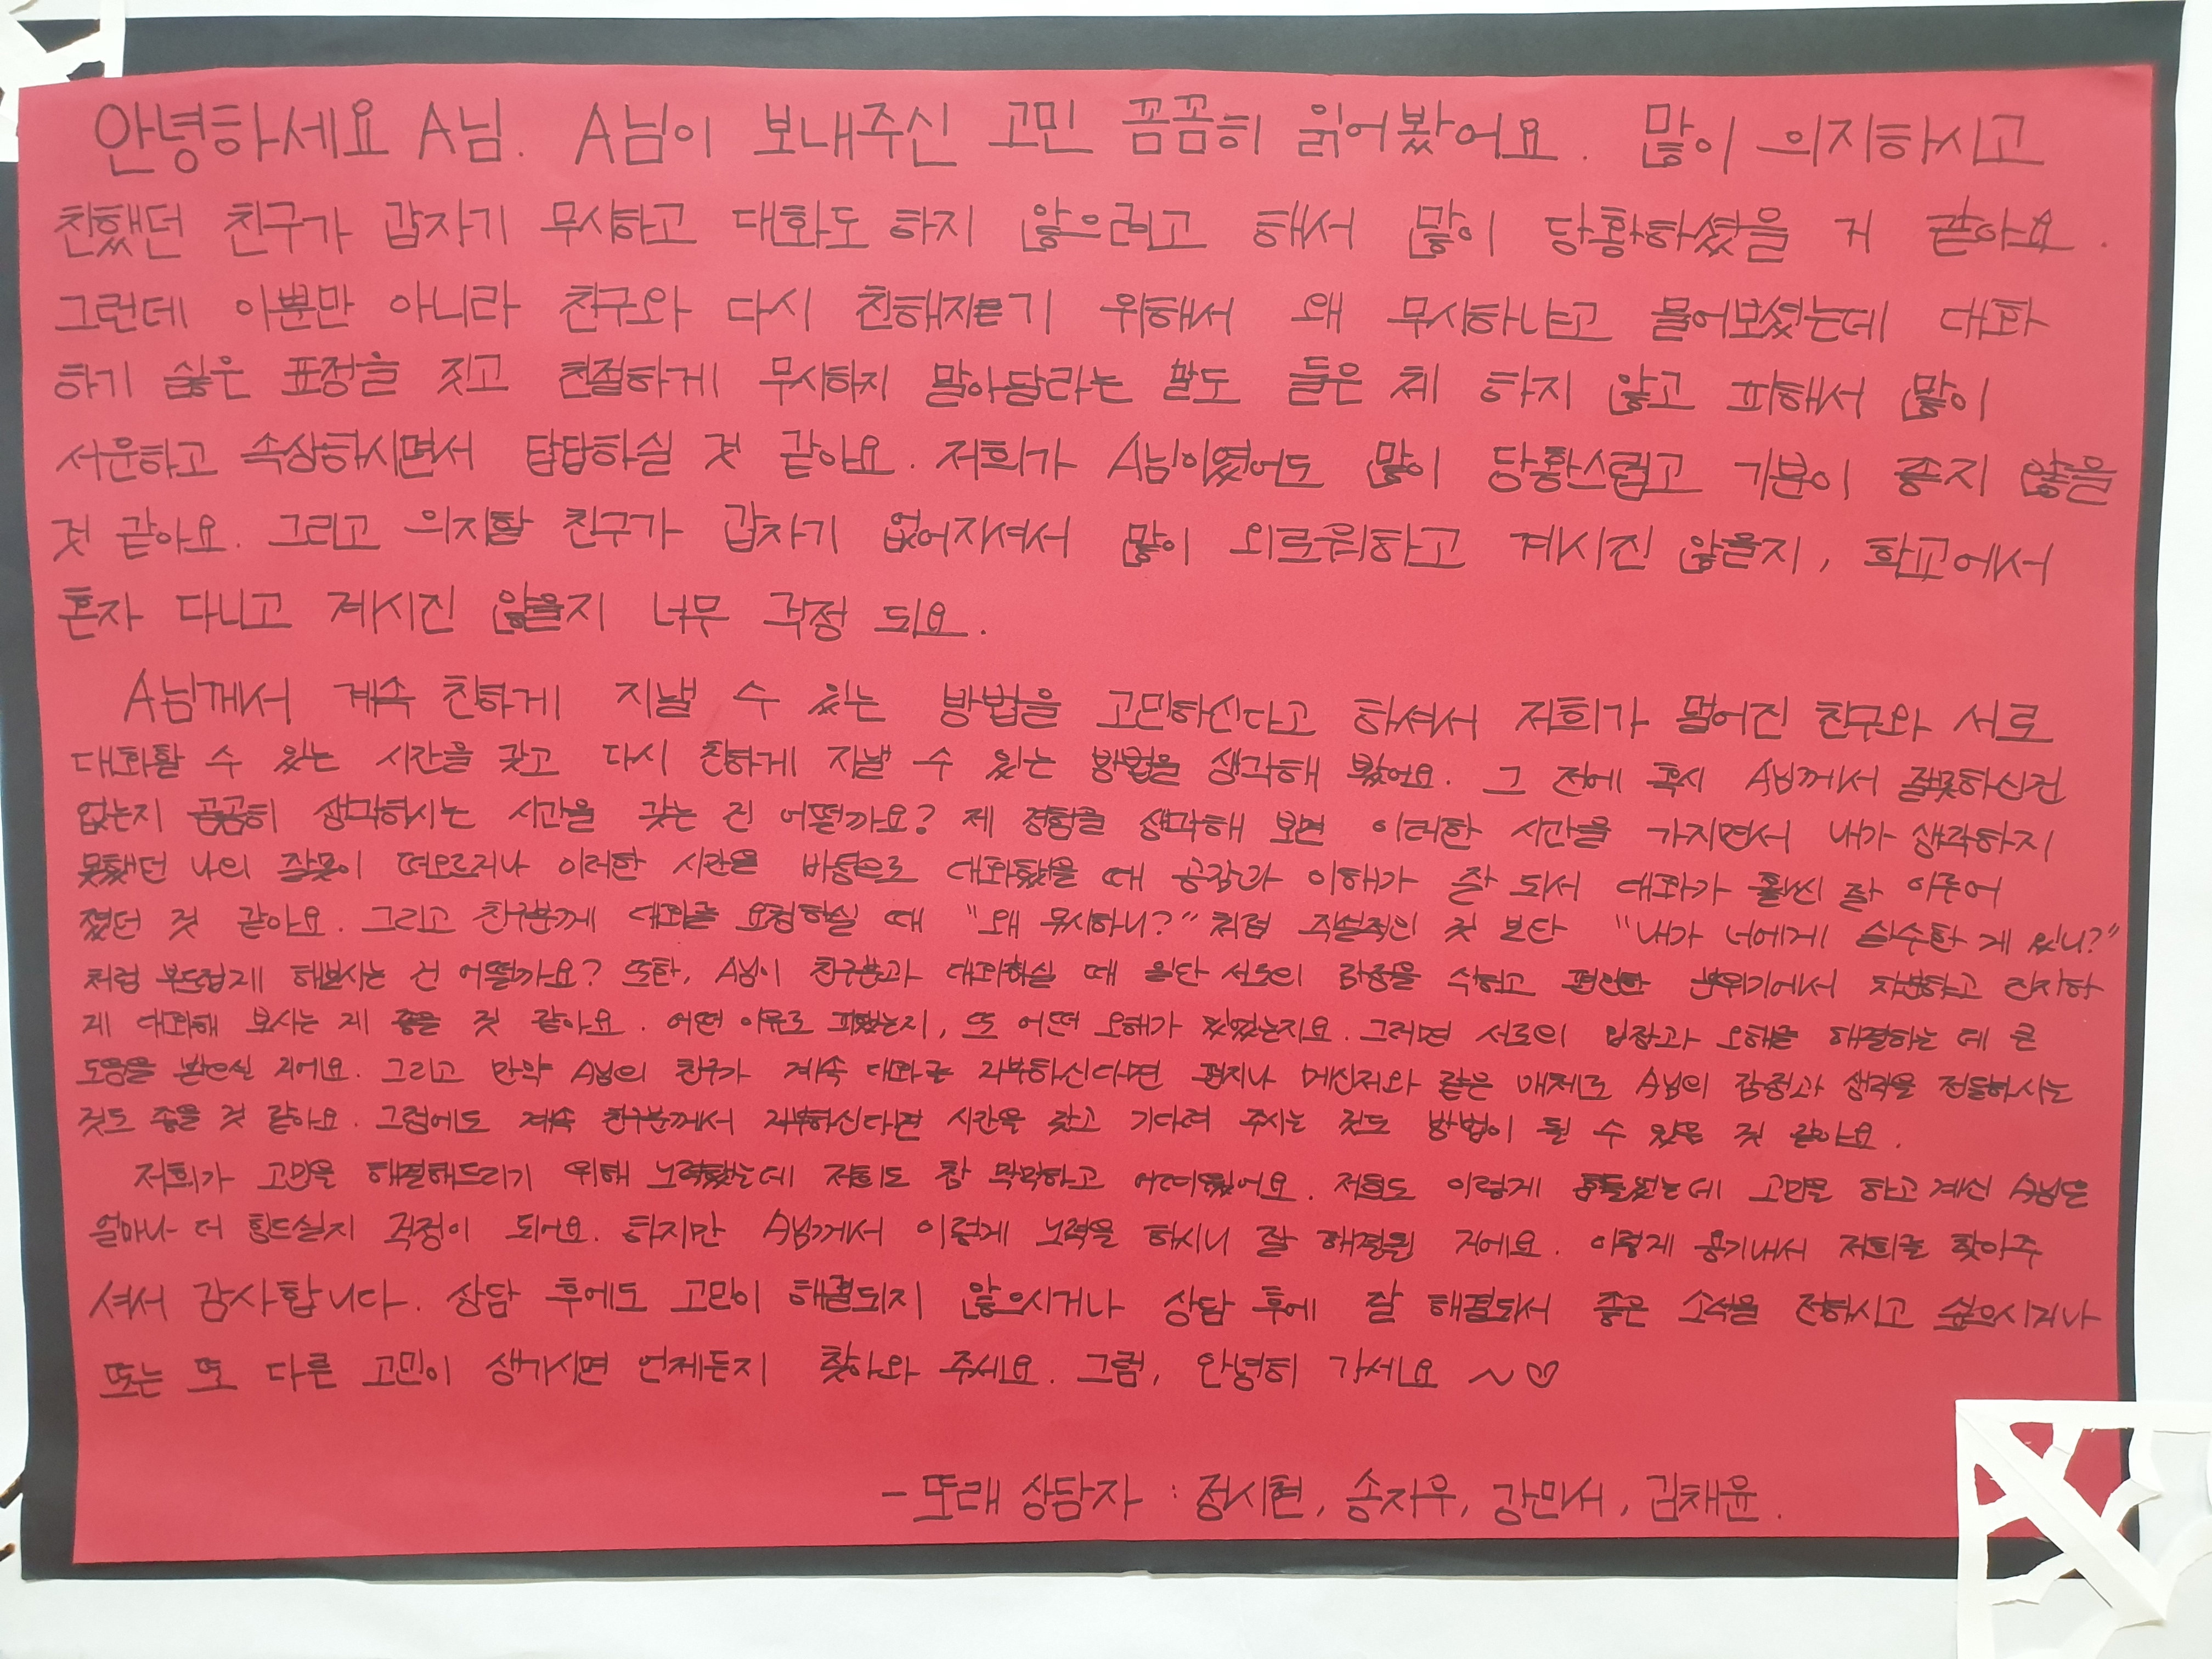 안녕하세요 A님. A님이 보내주신 고민 꼼꼼히 읽어봤어요. 많이 의지하시고
친했던 친구가 갑자기 무시하고 대화도 하지 않으려고 해서 많이 당황하셨을 거 같아요.
그런데 이뿐만 아니라 친구와 다시 친해지기 위해서 왜 무시하냐고 물어보셨는데 대화
하기 싫은 표정을 짓고 친절하게 무시하지 말아달라는 말도 들은 체 하지 않고 피해서 많이
서운하고 속상하시면서 답답하실 것 같아요. 저희가 A님이였어도 많이 당황스럽고 기분이 좋지 않을
것 같아요. 그리고 의지할 친구가 갑자기 없어지셔서 많이 외로워하고 계시진 않을지, 학교에서
혼자 다니고 계시진 않을지 너무 걱정 되요.
A님께서 계속 친하게 지낼 수 있는 방법을 고민하신다고 하셔서 저희가 멀어진 친구와 서로
대화할 수 있는 시간을 갖고 다시 친하게 지낼 수 있는 방법을 생각해 봤어요. 그 전에 혹시 A님께서 잘못하신건
없는지 곰곰히 생각하시는 시간을 갖는 건 어떨까요? 제 경험을 생각해 보면 이러한 시간을 가지면서 내가 생각하지
못했던 나의 잘못이 떠오르거나 이러한 시간을 바탕으로 대화했을 때 공감과 이해가 잘 되서 대화가 훨씬 잘 이루어
졌던 것 같아요. 그리고 친구분께 대화를 요청하실 때 "왜 무시하니?" 처럼 직설적인 것 보단 "내가 너에게 실수한 게 있니?"
처럼 부드럽게 해보시는 건 어떨까요? 또한, A님이 친구분과 대화하실 때 일단 서로의 감정을 식히고 편안한 분위기에서 차분하고 진지하
게 대화해 보시는 게 좋을 것 같아요. 어떤 이유로 피했는지, 또 어떤 오해가 있었는지요. 그러면 서로의 입장과 오해를 해결하는 데 큰
도움을 받으실 거에요. 그리고 만약 A님의 친구가 계속 대화를 거부하신다면 편지나 메신저와 같은 매체로 A님의 감정과 생각을 전달하시는
것도 좋을 것 같아요. 그럼에도 계속 친구분께서 거부하신다면 시간을 갖고 기다려 주시는 것도 방법이 될 수 있을 것 같아요.
저희가 고민을 해결해드리기 위해 노력했는데 저희도 참 막막하고 어려웠어요. 저희도 이렇게 힘들었는데 고민을 하고 계신 A님은
얼마나 더 힘드실지 걱정이 되어요. 하지만 A님께서 이렇게 노력을 하시니 잘 해결될 거에요. 이렇게 용기내서 저희를 찾아주
셔서 감사합니다. 상담 후에도 고민이 해결되지 않으시거나 상담 후에 잘 해결되서 좋은 소식을 전하시고 싶으시거나
또는 또 다른 고민이 생기시면 언제든지 찾아와 주세요. 그럼, 안녕히 가세요 ~♡
- 또래 상담자 : 정시현, 송지우, 강민서, 김채윤.